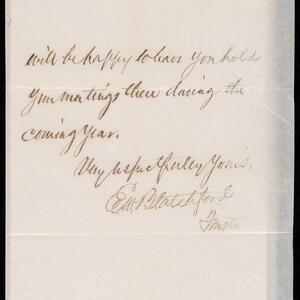 will be happy to have you hold
your meetings there during the
coming year.
Very respectfully Yours,
E W Blatchford
Trustee